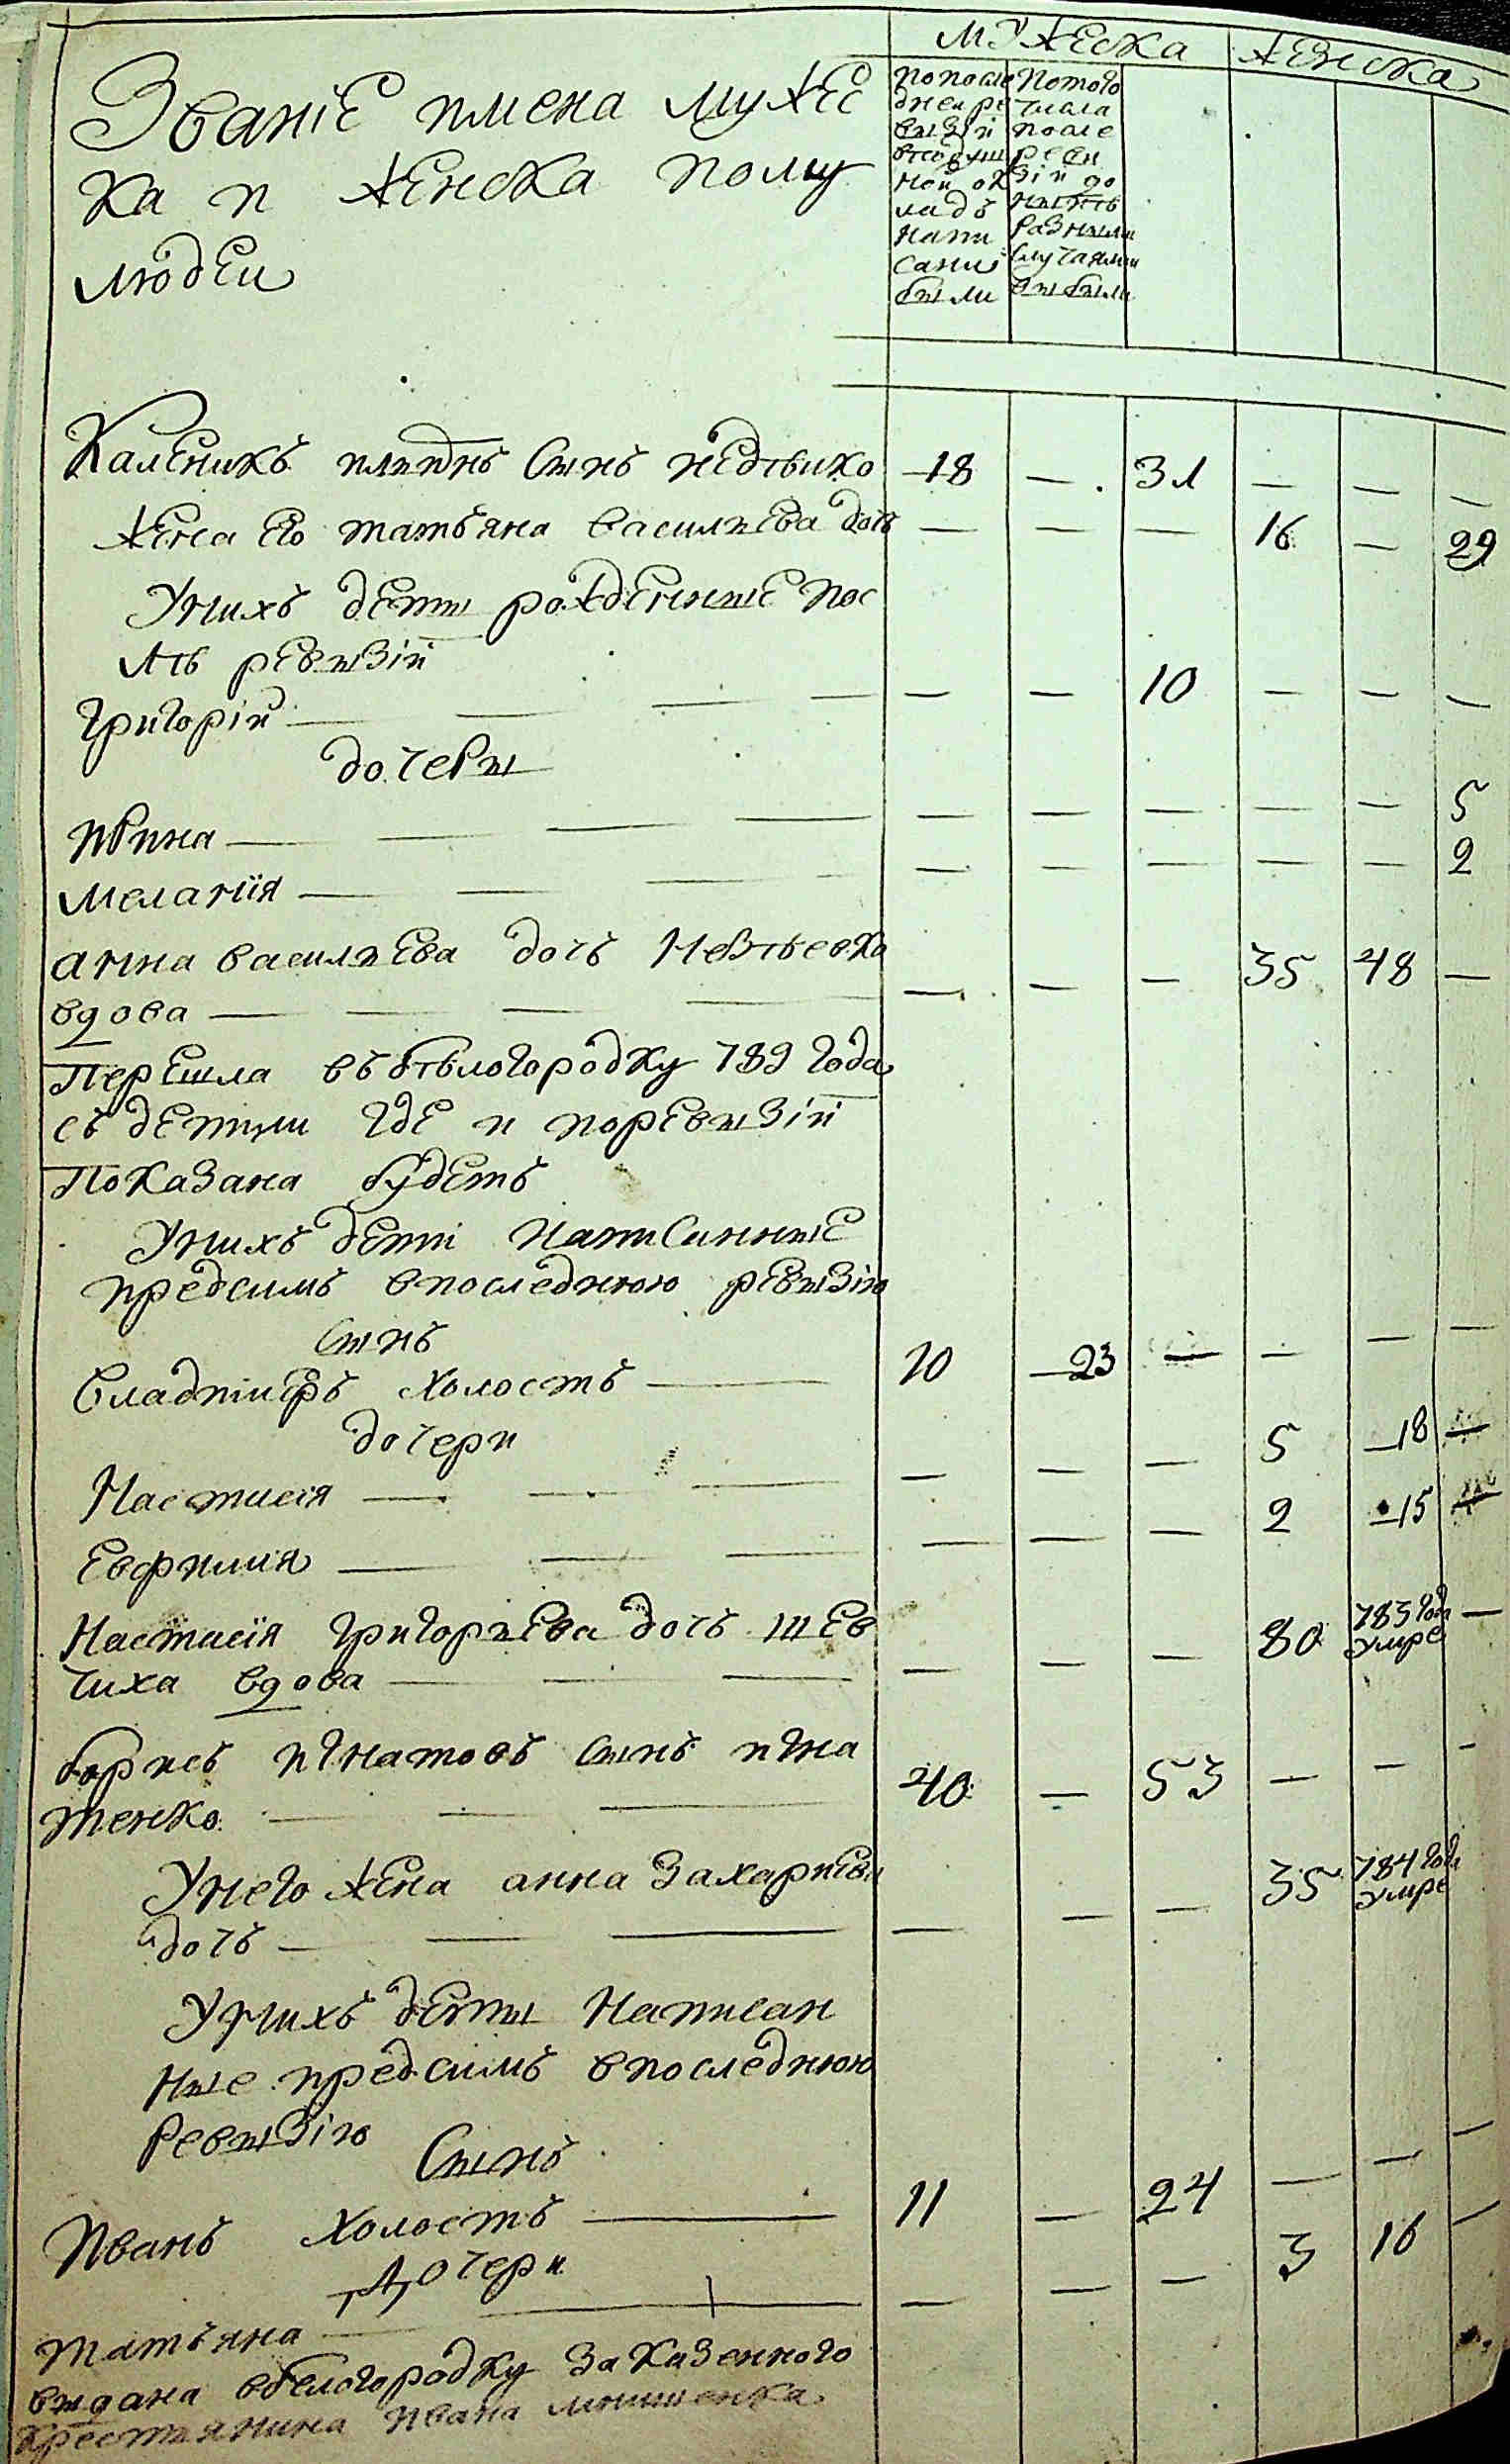 МУЖЕСКА ЖЕНСКА
Званіе имена мужес
ка и женска полу
людеи
По после
дней ре
визіи
в подуш
ной ок
ладъ
напи
саны
были
Потого
числа
после
реви
зіи до
нынѣ
разными
случаями
выбыли
Каленикъ сынъ 18 — 31 — — —
Жена его татьяна василиева дочь — — — 16 — 29
Унихъ дети рожденные пос
лѣ ревизіи
григоріи — — 10 — — —
дочери
ирина — — — — — 5
меланія — — — — — 2
анна василиева дочь
вдова — — — 35 48 —
перешла въ бѣлогородку 789 года
съ детми где и поревизіи
показана будетъ
Унихъ дети написанные
предсимъ впоследнюю ревизію
сынъ
владимиръ холостъ 10 23 — — — —
дочери
Настасія — — — 5 18 —
Евфимія — — — 2 15 —
Настасія григориева дочь шев
чиха вдова — — — 80 783 года умре —
борисъ игнатовъ сынъ игна
тенко 40 — 53 — — —
Унего жена анна захариева
дочь — — — 35 784 года умре
Унихъ дети написан
ные предсимъ впоследнюю
ревизію
Сынъ
иванъ холостъ 11 — 24 — — —
Дочери
татьяна — — — 3 16 —
выдана вбелогородку за казенного
крестьянина ивана